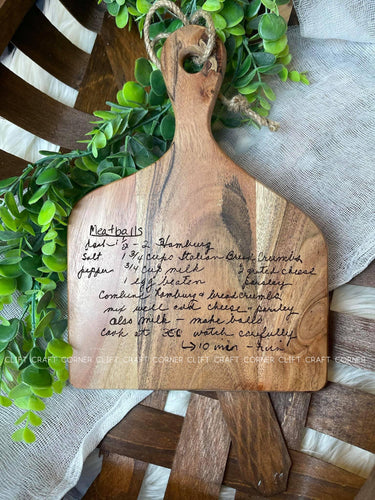 Meatballs
dash 1 1/2 - 2 Hamburg
Salt 1 3/4 cups Italian Bread Crumbs
pepper 3/4 cup milk 2 grated cheese
1 egg beaten parsley
Combine hamburg & breadcrumbs
mix well add cheese & parsley
also milk - make balls
Cook at 350 watch carefully
↳ 10 min - turn
CLIFT CRAFT CORNER CLIFT CRAFT CORNER CLIFT CRAFT CORNER